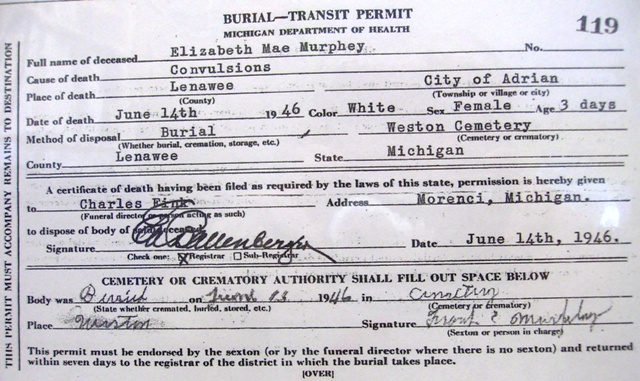 BURIAL—TRANSIT PERMIT
MICHIGAN DEPARTMENT OF HEALTH
119
THIS PERMIT MUST ACCOMPANY REMAINS TO DESTINATION
Full name of deceased Elizabeth Mae Murphey No.
Cause of death Convulsions
Place of death Lenawee City of Adrian
(County) (Township or village or city)
Date of death June 14th 1946 Color White Sex Female Age 3 days
Method of disposal Burial Weston Cemetery
(Whether burial, cremation, storage, etc.) (Cemetery or crematory)
County Lenawee State Michigan
A certificate of death having been filed as required by the laws of this state, permission is hereby given
to Charles Fink Address Morenci, Michigan.
(Funeral director or person acting as such)
to dispose of body of said deceased.
Signature Date June 14th, 1946.
Check one: X Registrar Sub-Registrar
CEMETERY OR CREMATORY AUTHORITY SHALL FILL OUT SPACE BELOW
Body was Buried on June 1946 in Cemetery
(State whether cremated, buried, stored, etc.) (Cemetery or crematory)
Place Weston Signature Frank E Murphy
(Sexton or person in charge)
This permit must be endorsed by the sexton (or by the funeral director where there is no sexton) and returned
within seven days to the registrar of the district in which the burial takes place.
[OVER]